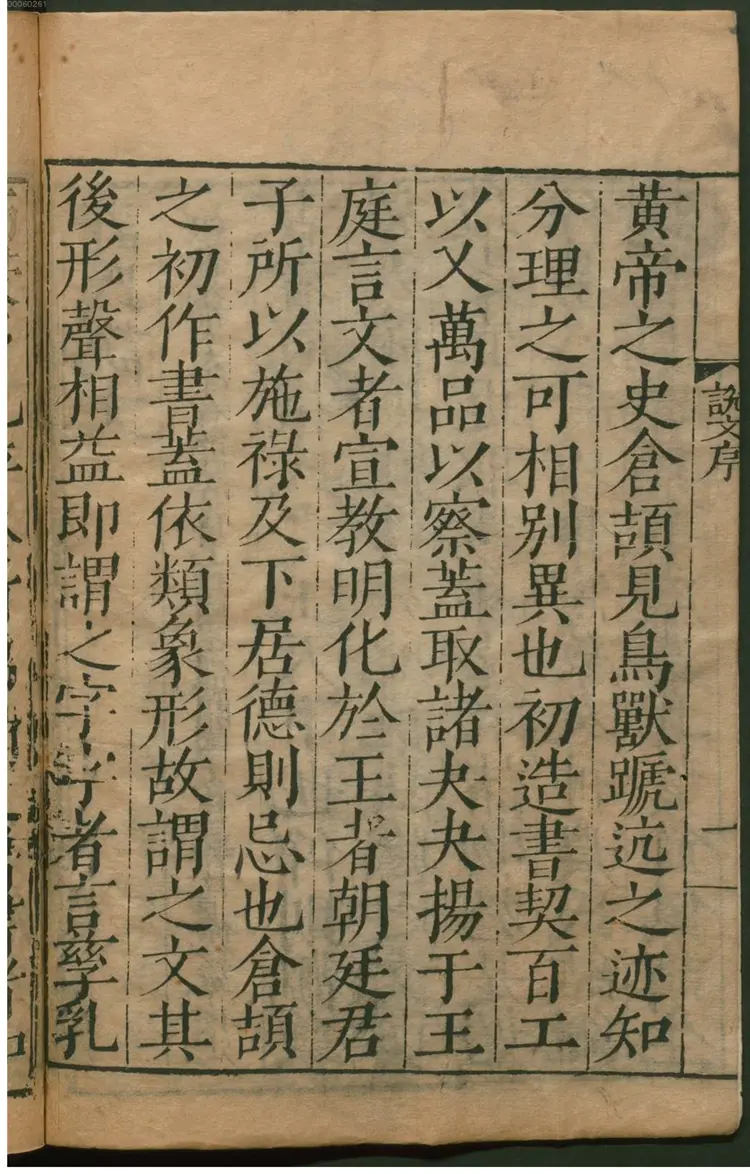 00060261
說文序
一
黄帝之史倉頡見鳥獸蹏迒之迹知
分理之可相別異也初造書契百工
以乂萬品以察蓋取諸夬夬揚于王
庭言文者宣教明化於王者朝廷君
子所以施祿及下居德則忌也倉頡
之初作書蓋依類象形故謂之文其
後形聲相益即謂之字字者言孳乳